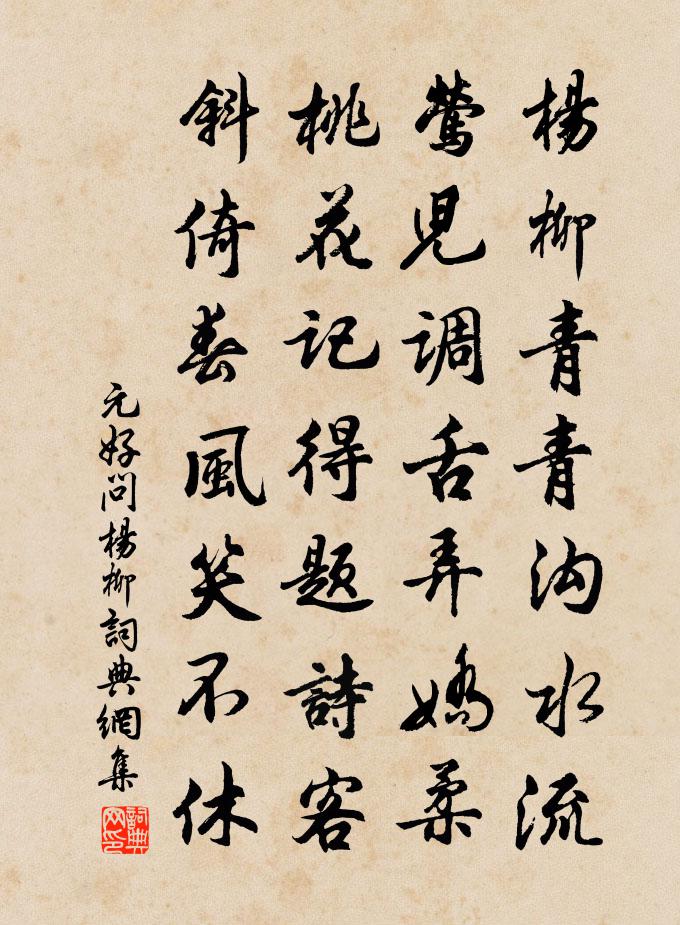 楊柳青青沟水流
鶯児調舌弄嬌柔
桃花記得題詩客
斜倚春風笑不休
元好问楊柳詞典網集
詞典网印